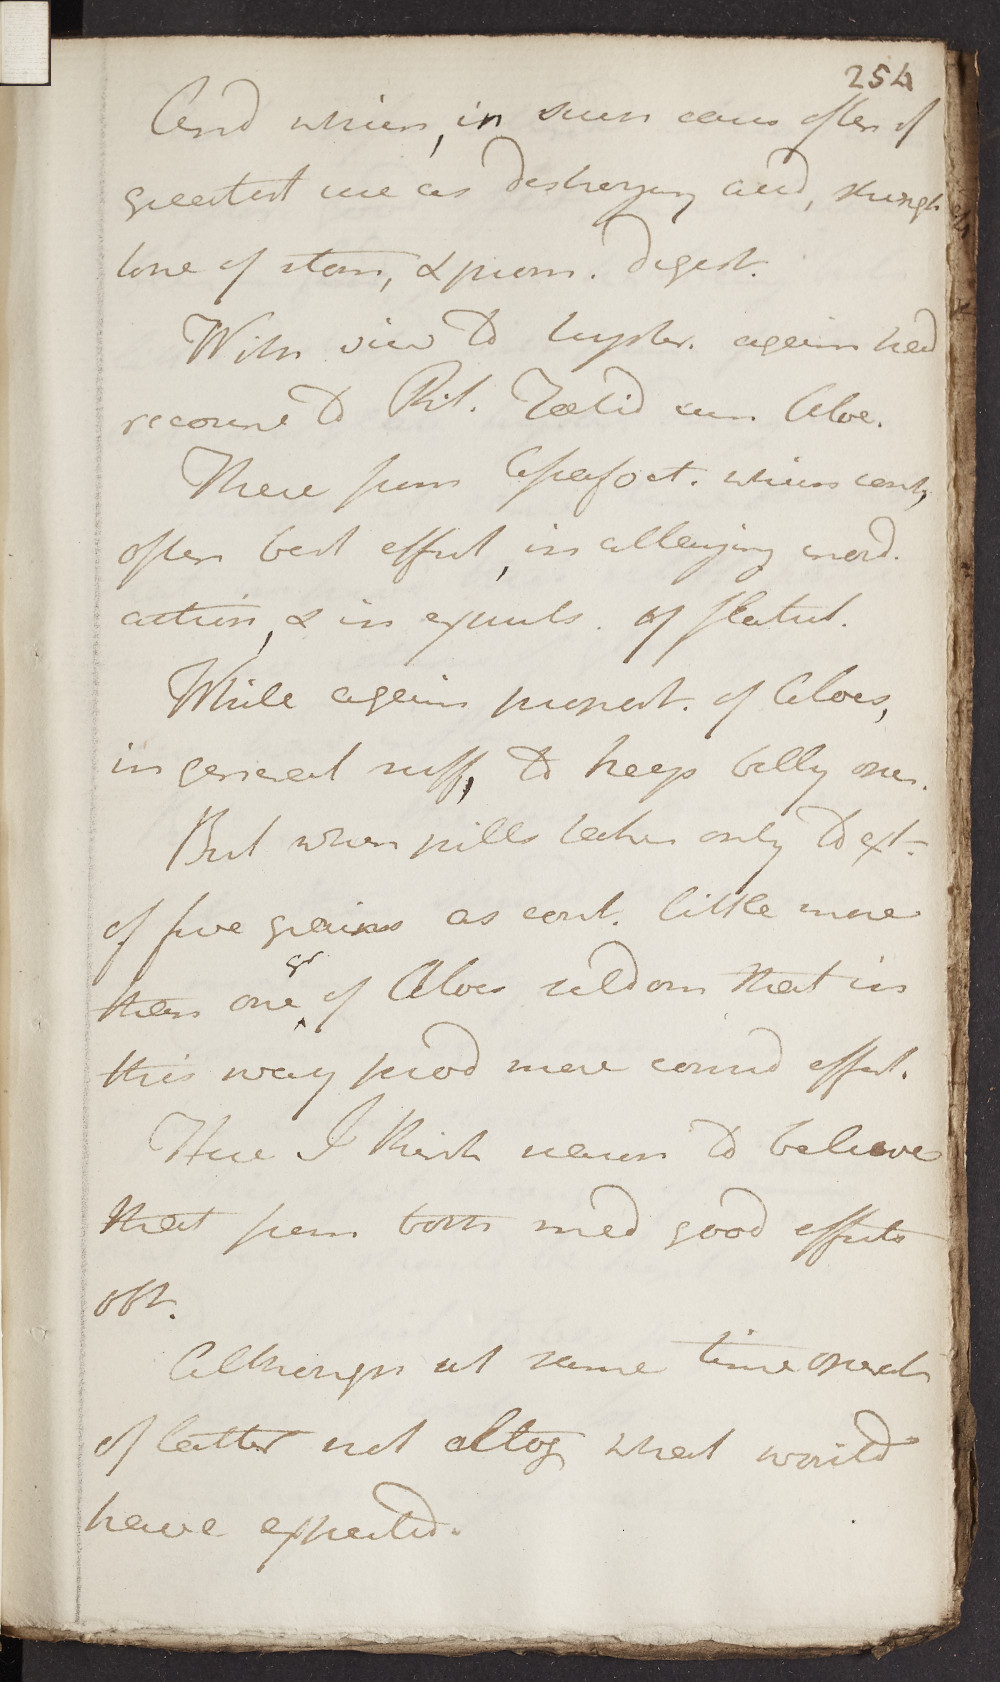 254
And which, in such cases often of
greatest use as destroying acid, strength
tone of stom, & prom. digest.
With view to hyster. again had
recourse to Pil. Foetid cum Aloe.
These from Assafoet. which cont,
often best effect, in allaying inord.
action, & in expuls. of flatul.
While again proport. of Aloes,
in general suff, to keep belly open.
But when pills taken only to ext.
of five grains as cont. little more
than one gr of Aloes seldom that in
this way prod more consid effect.
Here I think reason to believe
that from both med good effects
obt.
Although at same time operat
of latter not altog what would
have expected.